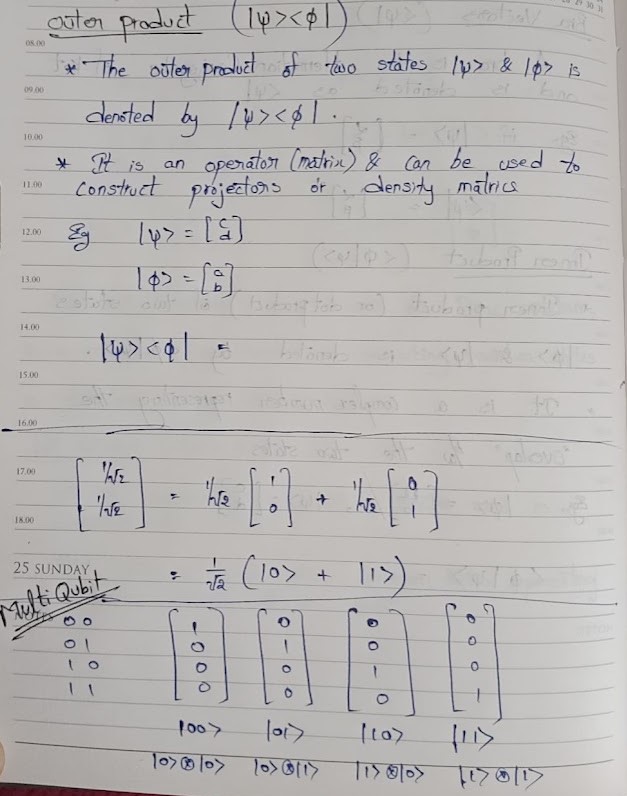 outer product (|ψ><φ|)
08.00
* The outer product of two states |ψ> & |φ> is
09.00
denoted by |ψ><φ| .
10.00
* It is an operator (matrix) & can be used to
11.00
construct projectors or density matrics
12.00 Eg |ψ> = [c d]
13.00 |φ> = [a b]
14.00
|ψ><φ| =
15.00
16.00
17.00 [1/√2 1/√2] = 1/√2 [1 0] + 1/√2 [0 1]
18.00
25 SUNDAY = 1/√2 (|0> + |1>)
Multi Qubit
00 [1 0 0 0] [0 1 0 0] [0 0 1 0] [0 0 0 1]
01
10
11
|00> |01> |10> |11>
|0>⊗|0> |0>⊗|1> |1>⊗|0> |1>⊗|1>